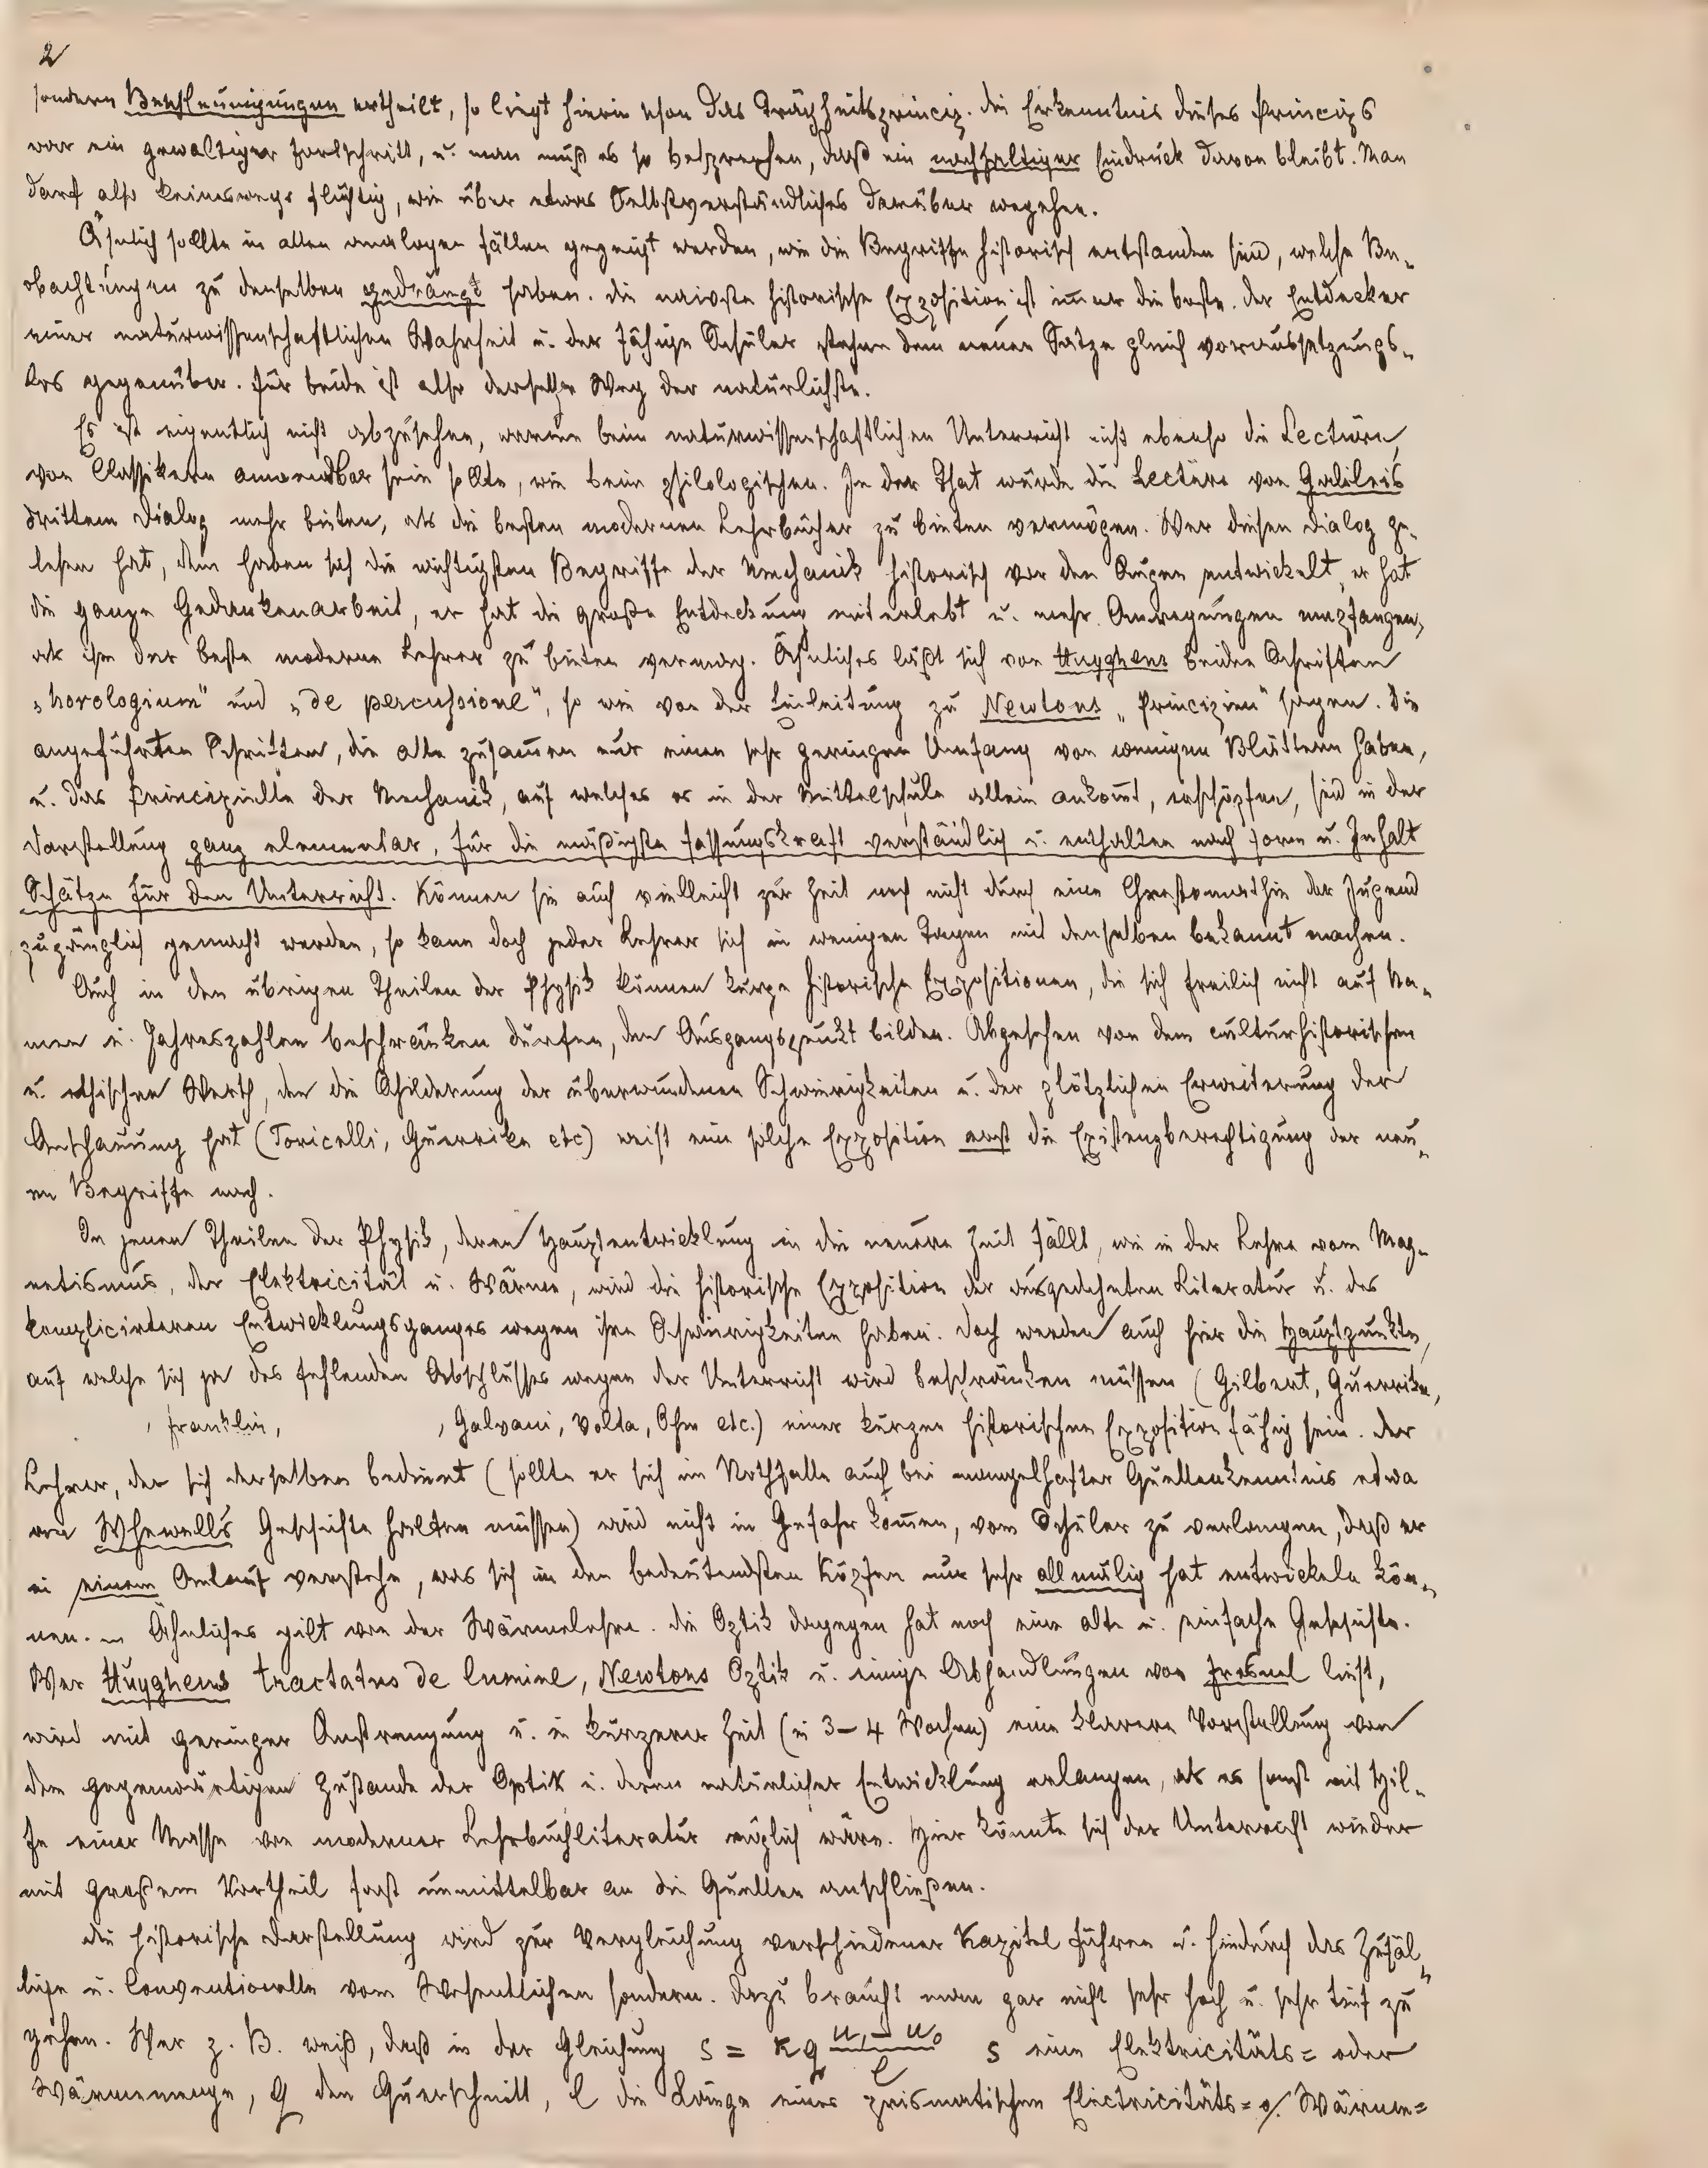 2
sondern Beschleunigungen ertheilt, so liegt hierin schon das Trägheitsprincip. Die Erkenntnis dieses Princips
war ein gewaltiger Fortschritt, u. man muß es so besprechen, daß ein nachhaltiger Eindruck davon bleibt. Man
darf also keineswegs flüchtig, wie über etwas Selbstverständliches darüber wegehen.
Ähnlich sollte in allen analogen Fällen gezeigt werden, wie die Begriffe historisch entstanden sind, welche Be„
obachtungen zu denselben gedrängt haben. Die naivste historische Exposition ist im̄er die beste. Der Entdecker
einer naturwissenschaftlichen Wahrheit u. der fähige Schüler stehen dem neuen Satze gleich voraussetzungs„
los gegenüber. Für beide ist also derselbe Weg der natürlichste.
Es ist eigentlich nicht abzusehen, warum beim naturwissenschaftlichen Unterricht nicht ebenso die Lectüre
von Classikern anwendbar sein sollte, wie beim philologischen. In der That würde die Lectüre von Galileis
drittem Dialog mehr bieten, als die besten modernen Lehrbücher zu bieten vermögen. Wer diesen Dialog ge„
lesen hat, dem haben sich die wichtigsten Begriffe der Mechanik historisch vor den Augen entwickelt, er hat
die ganze Gedankenarbeit, er hat die große Entdeckung miterlebt u. mehr Anregungen empfangen,
als ihm der beste moderne Lehrer zu bieten vermag. Ähnliches läßt sich von Huyghens beiden Schriften
„horologium" und „de percussione", so wie von der Einleitung zu Newtons „Principien" sagen. Die
angeführten Schriften, die alle zusam̄en nur einen sehr geringen Umfang von wenigen Blättern haben,
u. das Principielle der Mechanik, auf welches es in der Mittelschule allein ankom̄t, erschöpfen, sind in der
Darstellung ganz elementar, für die mäßigste Fassungskraft verständlich u. enthalten nach Form u. Inhalt
Schätze für den Unterricht. Können sie auch vielleicht zur Zeit noch nicht durch eine Chrestomathie der Jugend
zugänglich gemacht werden, so kann doch jeder Lehrer sich in wenigen Tagen mit denselben bekannt machen.
Auch in den übrigen Theilen der Physik können kurze historische Expositionen, die sich freilich nicht auf Na„
men u. Jahreszahlen beschränken dürfen, den Ausgangspunkt bilden. Abgesehen von dem culturhistorischen
u. ethischen Werth, den die Schilderung der überwundenen Schwierigkeiten u. der plötzlichen Erweiterung der
Anschauung hat (Toricelli, Guerrike etc) weist eine solche Exposition erst die Existenzberechtigung der neu„
en Begriffe nach.
In jenen Theilen der Physik, deren Hauptentwicklung in die neuere Zeit fällt, wie in der Lehre vom Mag„
netismus, der Elektricität u. Wärme, wird die historische Exposition der ausgedehnten Literatur u. des
komplicirteren Entwicklungsganges wegen ihre Schwierigkeiten haben. Doch werden auch hier die Hauptpunkte,
auf welche sich ja des fehlenden Abschlusses wegen der Unterricht wird beschränken müssen (Gilbert, Guerrike,
, Franklin, , Galvani, Volta, Ohm etc.) einer kurzen historischen Exposition fähig sein. Der
Lehrer, der sich derselben bedient (sollte er sich im Nothfalle auch bei mangelhafter Quellenkenntnis etwa
an Whewells Geschichte halten müssen) wird nicht in Gefahr kom̄en, vom Schüler zu verlangen, daß er
in einem Anlauf verstehe, was sich in den bedeutendsten Köpfen nur sehr allmälig hat entwickeln kön„
nen. — Ähnliches gilt von der Wärmelehre. Die Optik dagegen hat noch eine alte u. einfache Geschichte.
Wer Huyghens tractatus de lumine, Newtons Optik u. einige Abhandlungen von Fresnel liest,
wird mit geringer Anstrengung u. in kürzerer Zeit (in 3–4 Wochen) eine klarere Vorstellung von
dem gegenwärtigen Zustande der Optik u. deren natürlicher Entwicklung erlangen, als es sonst mit Hil„
fe einer Masse von moderner Lehrbuchliteratur möglich wäre. Hier könnte sich der Unterricht wieder
mit großem Vortheil fast unmittelbar an die Quellen anschließen.
Die historische Darstellung wird zur Vergleichung verschiedener Kapitel führen u. hiedurch das Zufäl„
lige u. Conventionelle vom Wesentlichen sondern. Dazu braucht man gar nicht sehr hoch u. sehr tief zu
gehen. Wer z. B. weiß, daß in der Gleichung s = kq (u₁ – u₀)/l s eine Elektricitäts= oder
Wärmemenge, q den Querschnitt, l die Länge eines prismatischen Electricitäts= o/. Wärme=